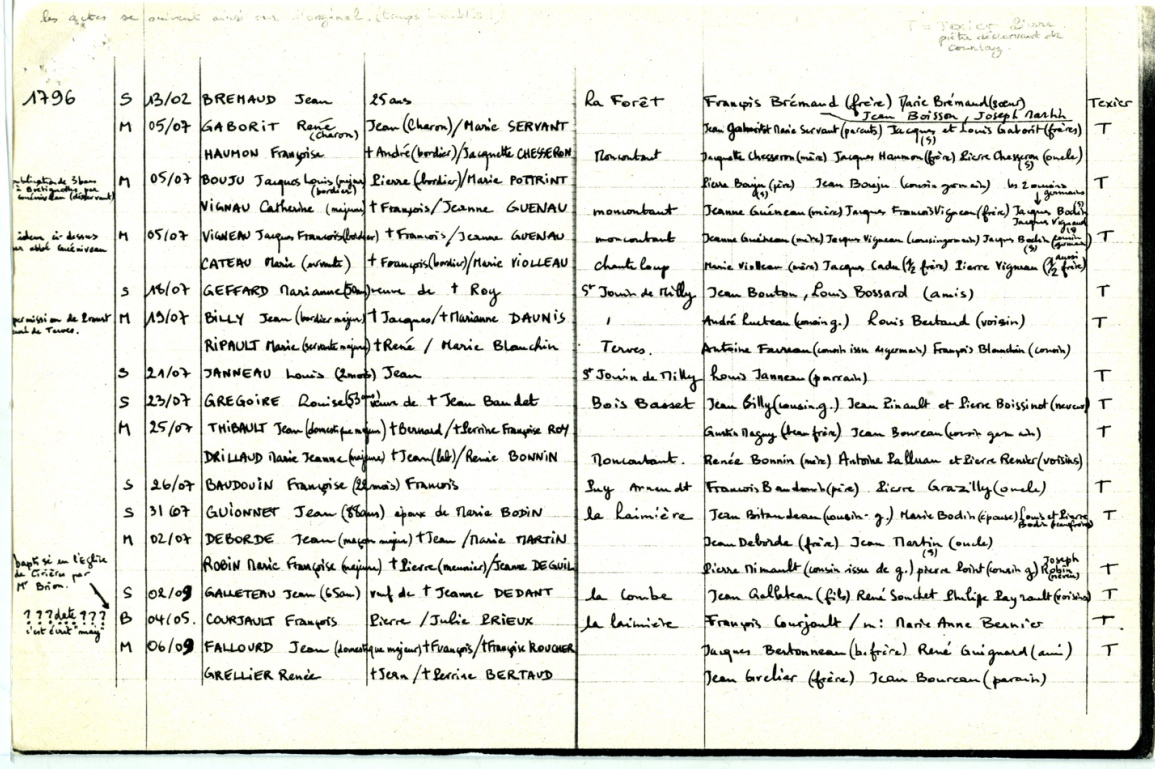 les actes se suivent ainsi sur l'original (temps
T = Texier Pierre
prêtre desservant de
Courlay.
1796 S 13/02 BREMAUD Jean 25 ans La Forêt François Brémaud (frère) Marie Brémaud (sœur) Texier
Jean Boisson, Joseph Martin
M 05/07 GABORIT René (charon) Jean (Charon)/Marie SERVANT Jean Gaborit Marie Servant (parents) Jacques et Louis Gaborit (frères) T
(S)
HAUMON Françoise + André (bordier)/Jacquette CHESSERON Moncoutant Jacquette Chesseron (mère) Jacques Haumon (frère) Pierre Chesseron (oncle)
(S)
publication de 3 bans
M 05/07 BOUJU Jacques Louis (majeur) (bordier) Pierre (bordier)/Marie POTTRINT Pierre Bouju (père) Jean Bouju (cousin germain) les 2 cousins germains T
(S)
VIGNAU Catherine (majeure) + François/Jeanne GUENAU moncoutant Jeanne Guéneau (mère) Jacques François Vigneau (frère) Jacques Bodin
Jacques Vigneau
idem ci-dessus
par abbé Guéniveau
M 05/07 VIGNEAU Jacques François (bordier) + François/Jeanne GUENAU moncoutant Jeanne Guéneau (mère) Jacques Vigneau (cousin germain) Jacques Bodin (cousin germain) T
(S)
CATEAU Marie (servante) + François (bordier)/Marie VIOLLEAU chanteloup Marie Violleau (mère) Jacques Cadu (1/2 frère) Pierre Vigneau (aussi 1/2 frère)
S 18/07 GEFFARD Marianne veuve de + Roy St Jouin de Milly Jean Bouton, Louis Bossard (amis) T
permission de
curé de Terves.
M 19/07 BILLY Jean (bordier majeur) + Jacques/+ Marianne DAUNIS André Lucteau (cousin g.) Louis Bertaud (voisin) T
RIPAULT Marie (servante majeure) + René / Marie Blanchin Terves. Antoine Favreau (cousin issu de germain) François Blanchin (cousin)
S 21/07 JANNEAU Louis (2 mois) Jean St Jouin de Milly Louis Janneau (parrain) T
S 23/07 GREGOIRE Louise (53 ans) veuve de + Jean Baudet Bois Basset Jean Billy (cousin g.) Jean Pinault et Pierre Boissinot (neveux) T
M 25/07 THIBAULT Jean (domestique majeur) + Bernard/+ Perrine Françoise ROY Gustin Maguy (beau frère) Jean Boureau (cousin germain) T
DRILLAUD Marie Jeanne (majeure) + Jean/Renée BONNIN Moncoutant. Renée Bonnin (mère) Antoine Palluau et Pierre Renier (voisins)
S 26/07 BAUDOUIN Françoise François Puy Arnendt François Baudouin (père) Pierre Grazilly (oncle) T
S 31/07 GUIONNET Jean époux de Marie BODIN la Laimière Jean Bitaudeau (cousin-g.) Marie Bodin (épouse) Louis et Pierre Bodin (beaufrères) T
M 02/07 DEBORDE Jean (maçon majeur) + Jean / Marie MARTIN Jean Deborde (frère) Jean Martin (oncle)
(S)
Baptisé en l'Eglise
de Cirière par
Mr Brion.
ROBIN Marie Françoise (majeure) + Pierre (meunier)/Jeanne DEGUIL Pierre Nimault (cousin issu de g.) pierre Loint (cousin g) Joseph Robin (neveu) T
S 02/09 GALLETEAU Jean (65 ans) veuf de + Jeanne DEDANT la Combe Jean Galleteau (fils) René Souchet Philippe Payrault (voisins) T
? ? ? date ? ? ?
c'est écrit may
B 04/05. COURJAULT François Pierre / Julie PRIEUX la laimière François Courjault / m: Marie Anne Bernier T
M 06/09 FALLOURD Jean (domestique majeur) + François/+ Françoise ROUCHER Jacques Bertonneau (b. frère) René Guignard (ami) T
GRELLIER Renée + Jean / + Perrine BERTAUD Jean Grelier (frère) Jean Boureau (parrain)